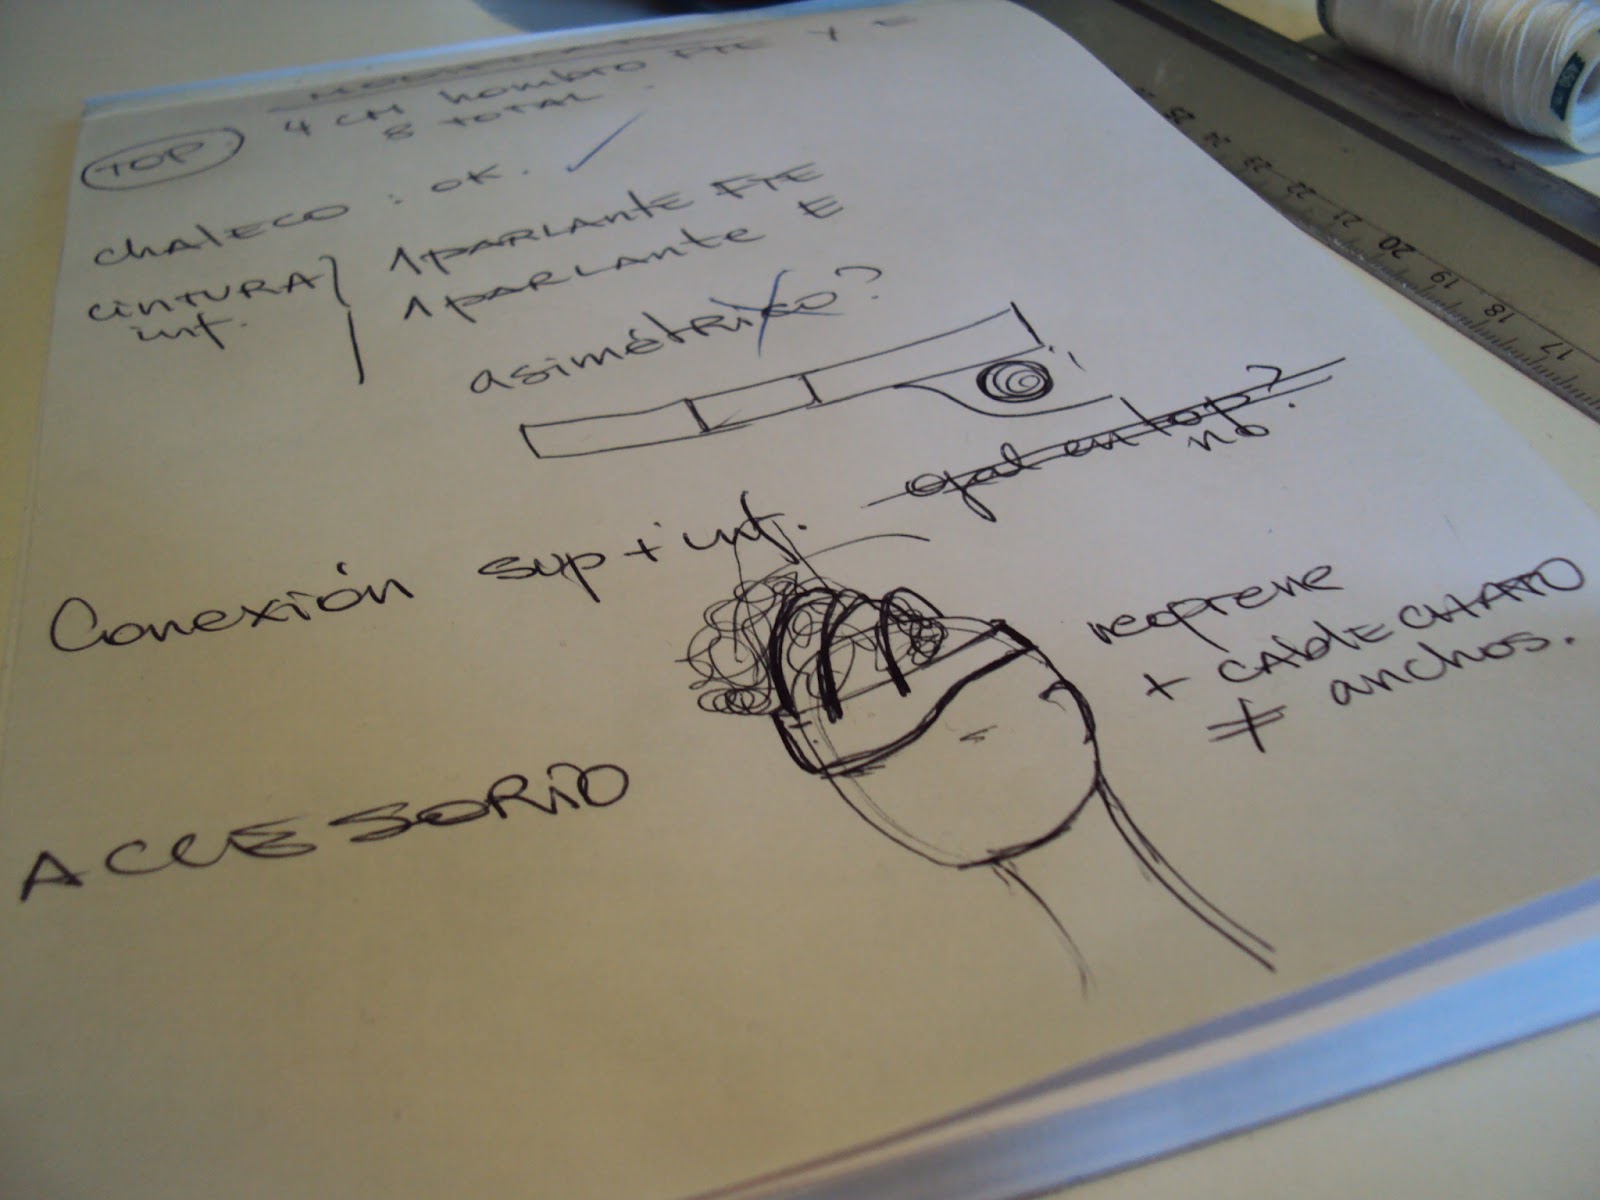 TOP: 4 CM hombro FTE Y E
8 TOTAL.
chaleco : OK. ✓
CINTURA inf. } 1 PARLANTE FTE
1 PARLANTE E
asimétrico?
en top?
no.
Conexión sup + inf.
neoprene
+ CABLE CHATO
≠ anchos.
ACCESORIO
17 18 19 20 21 22 23 24 25